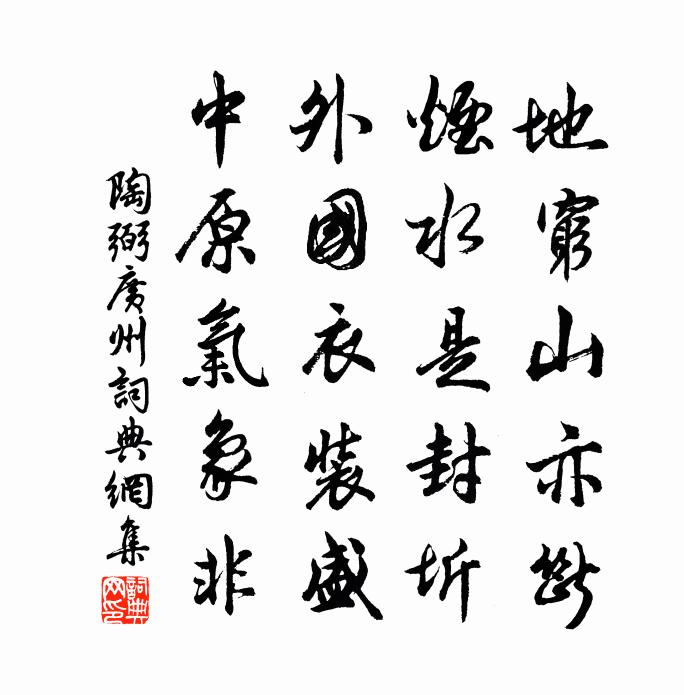 地窮山亦斷
煙水是封圻
外國衣裝盛
中原氣象非
陶弼廣州詞典網集
詞典網印